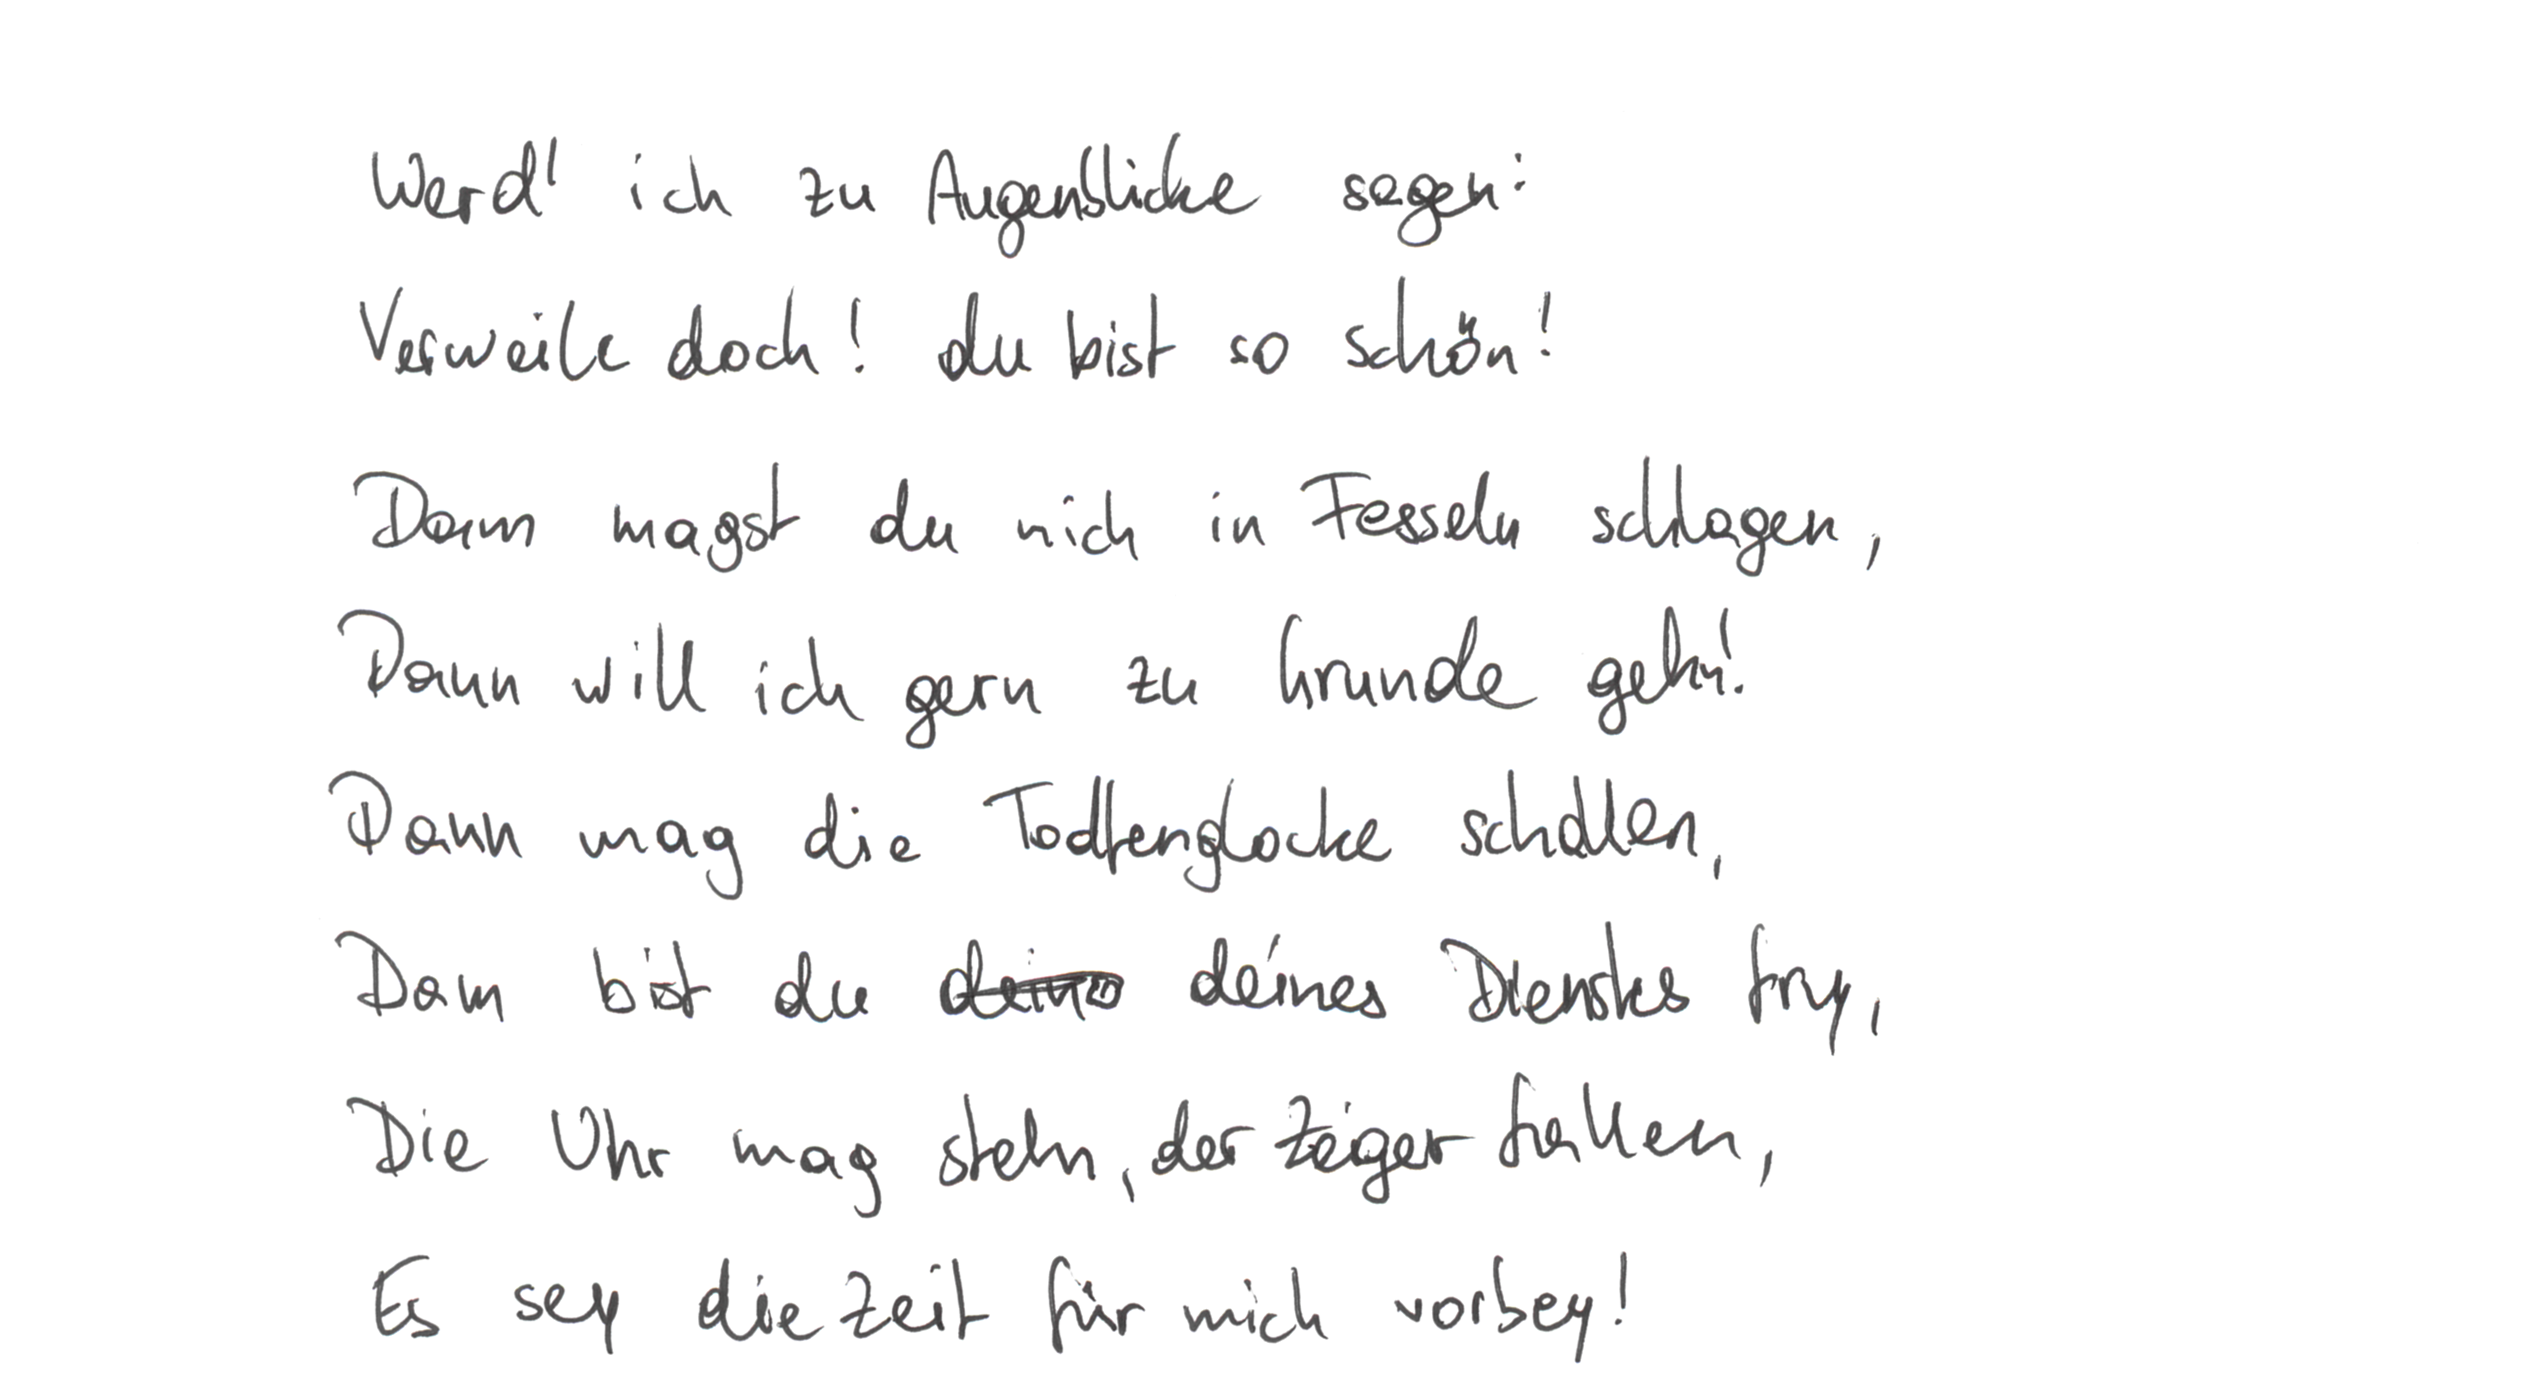 Werd' ich zu Augenblicke sagen:
Verweile doch! du bist so schön!
Dann magst du mich in Fesseln schlagen,
Dann will ich gern zu Grunde gehn!
Dann mag die Todtenglocke schallen,
Dann bist du deines Dienstes frey,
Die Uhr mag stehn, der Zeiger fallen,
Es sey die Zeit für mich vorbey!